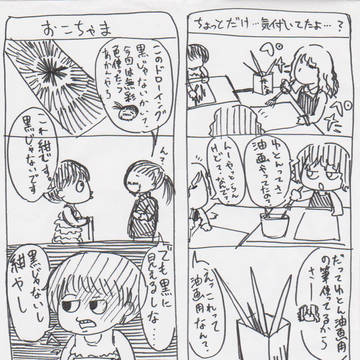 ちょっとだけ…気付いてたよ…?
ゆとれってさ
油画やってた?
んーん
やってたらん
けど?
だってゆとん油画用
の筆使ってるから
さー
えっこれって
油画用
なん?
おこちゃま
このドローイング
黒じゃないかい?
今回は無彩
色使ったら
あかんやろ
ん?
これ紺です。
黒じゃないです
でも黒に
見えるしな…
黒じゃないし
紺やし